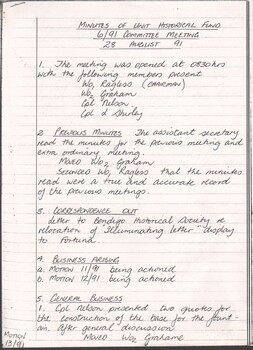 MINUTES OF UNIT HISTORICAL FUND
6/91 COMMITTEE MEETING
28 AUGUST 91
1. The meeting was opened at 0830hrs
with the following members present
WO1 Ragless (CHAIRMAN)
WO2 Graham
Cpl Nelson
Cpl Shurley
2 PREVIOUS MINUTES The assistant secretary
read the minutes for the previous meeting and
extra ordinary meeting.
MOVED WO2 Graham
SECONDED WO1 Ragless that the minutes
read were a true and accurate record
of the previous meetings.
3. CORRESPONDENCE OUT
letter to Bendigo Historical Society re
relocation of Illuminating letter display
to Fortuna.
4. BUSINESS ARISING
a. MOTION 11/91 being actioned
b. MOTION 12/91 being actioned
5. GENERAL BUSINESS
1. Cpl Nelson presented two quotes for
the construction of the base for the fount-
ain. After general discussion
MOTION
13/91
MOVED WO2 Grahame